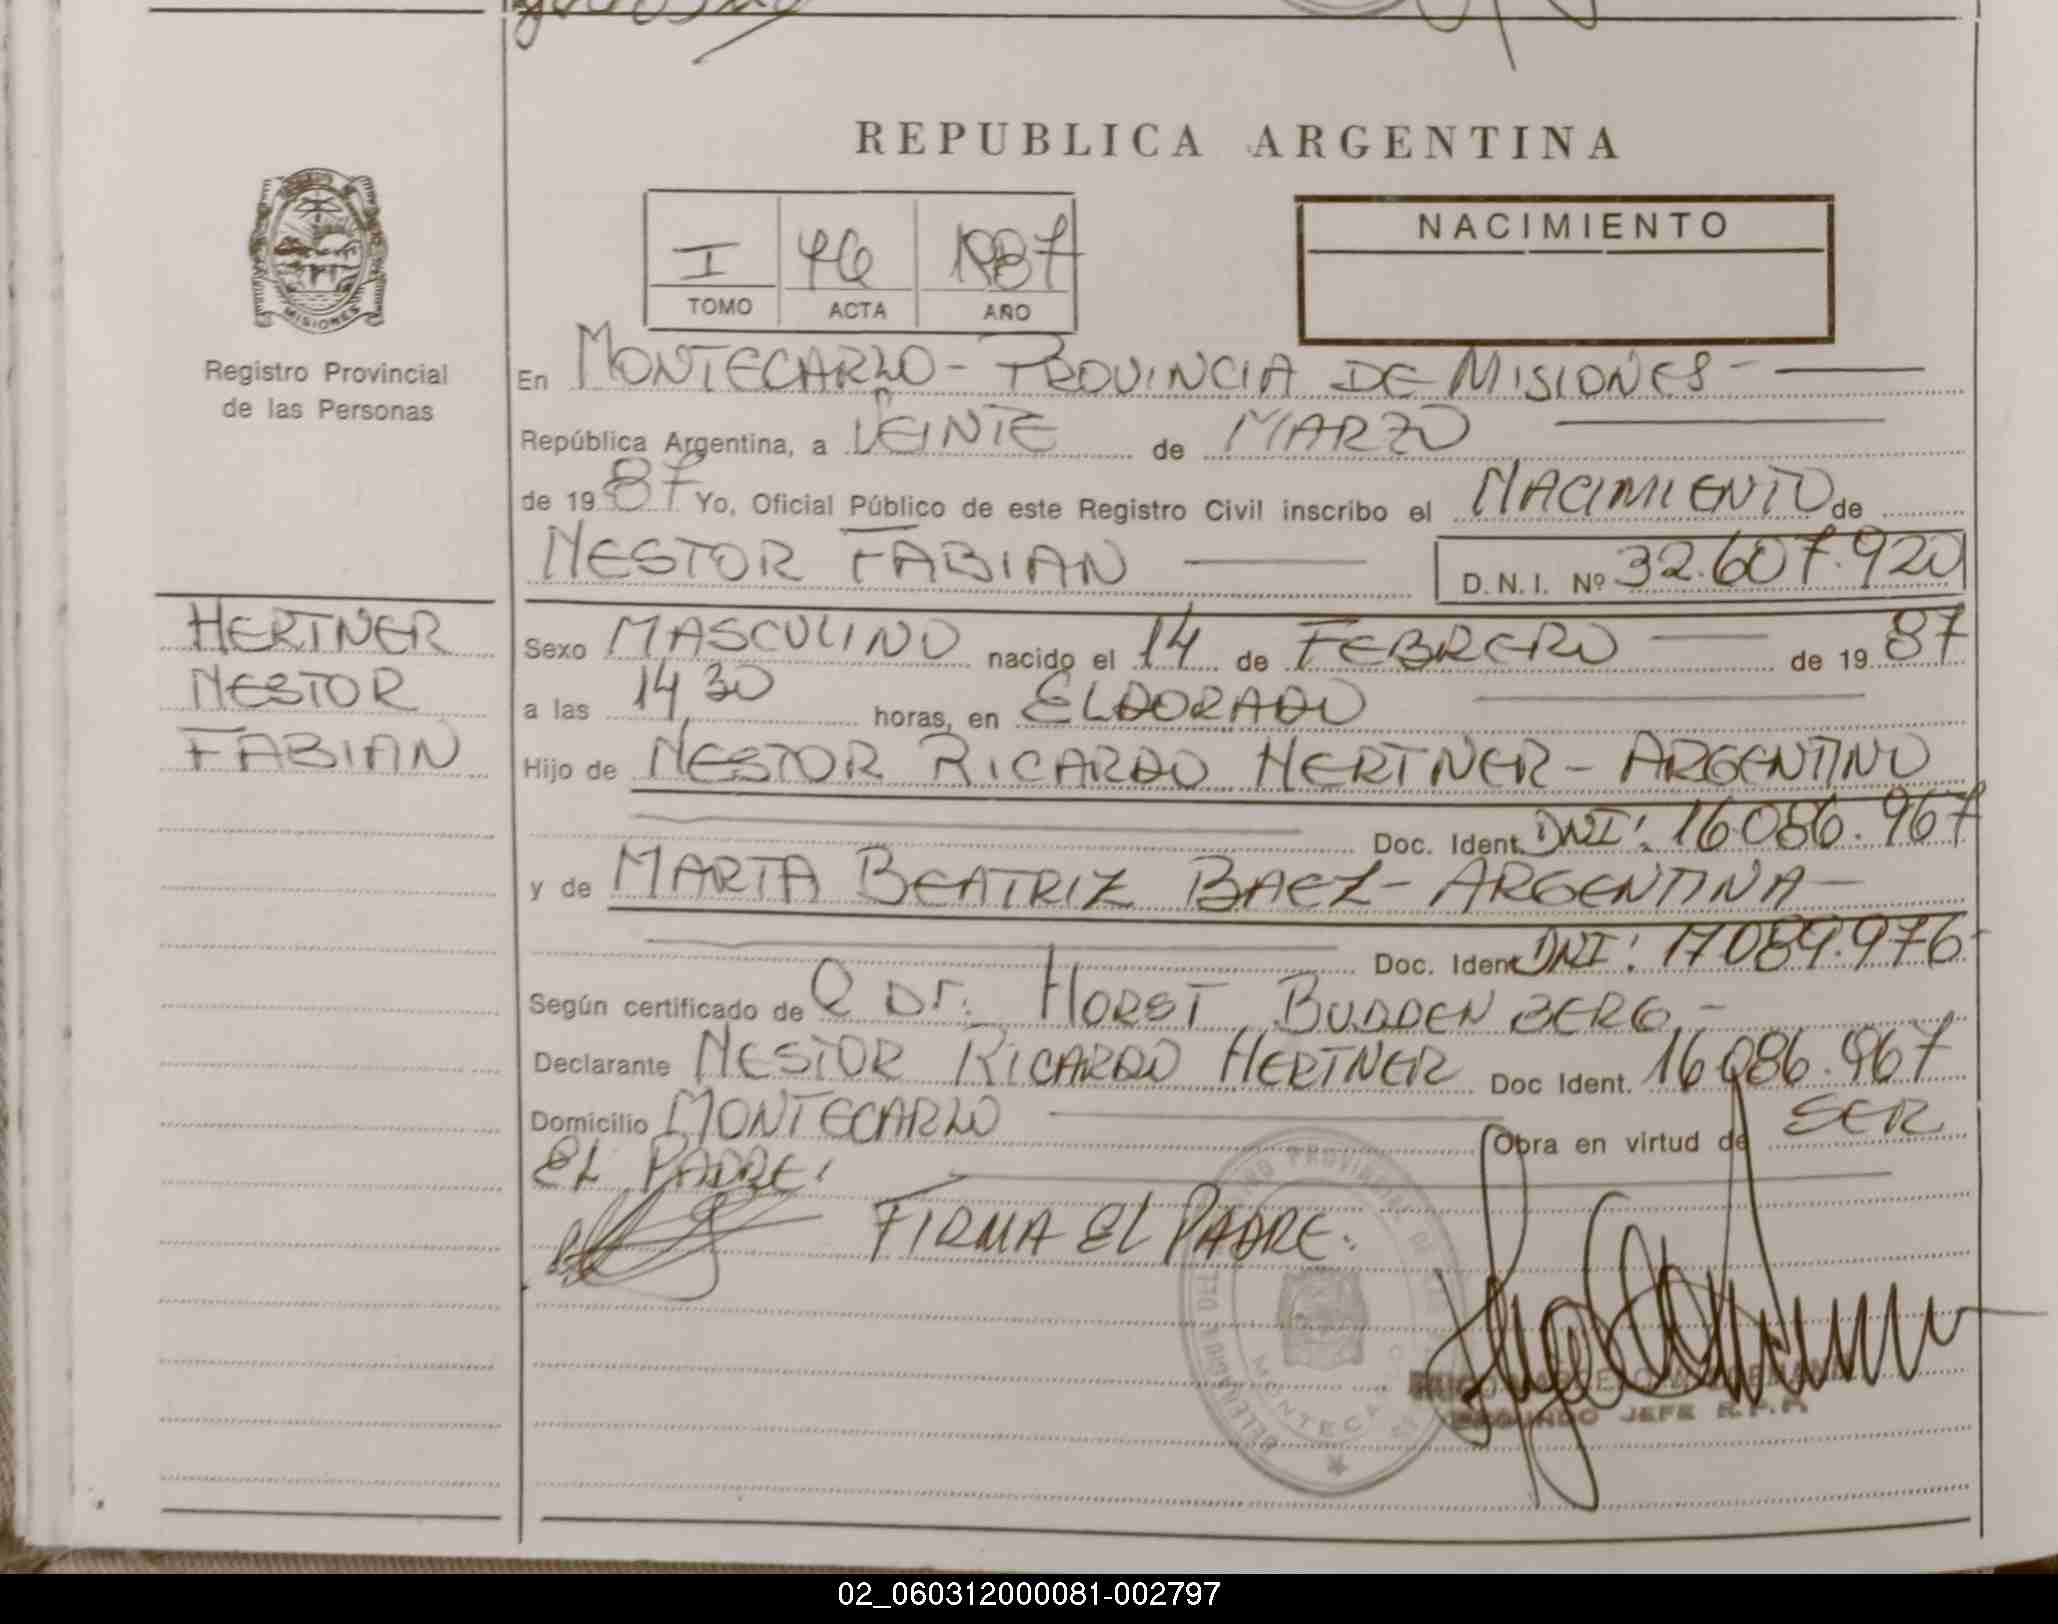 REPUBLICA ARGENTINA
MISIONES
Registro Provincial
de las Personas
I 46 1987
TOMO ACTA AÑO
NACIMIENTO
En MONTECARLO - PROVINCIA DE MISIONES -
República Argentina, a VEINTE de MARZO
de 19 87 Yo, Oficial Público de este Registro Civil inscribo el NACIMIENTO de
NESTOR FABIAN D.N.I. Nº 32.607.920
HERTNER
NESTOR
FABIAN
Sexo MASCULINO nacido el 14 de FEBRERO de 19 87
a las 14 30 horas, en ELDORADO
Hijo de NESTOR RICARDO HERTNER - ARGENTINO
Doc. Ident. DNI: 16.086.967
y de MARTA BEATRIZ BAEZ - ARGENTINA -
Doc. Ident DNI: 17.089.976-
Según certificado de Dr. HORST BUDDENBERG.-
Declarante NESTOR RICARDO HERTNER Doc Ident. 16.086.967
Domicilio MONTECARLO Obra en virtud de SER
EL PADRE.
FIRMA EL PADRE.
SEGUNDO JEFE R.P.P.
02_060312000081-002797